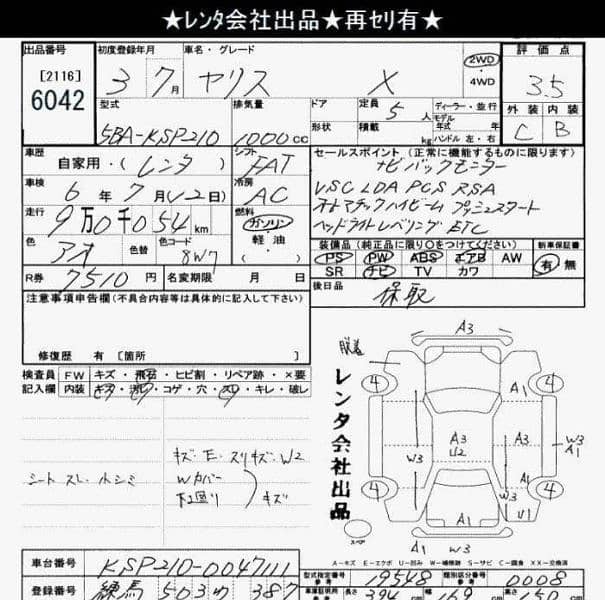 ★レンタ会社出品★再セリ有★
出品番号 初度登録年月 車名・グレード 評価点
[2116] 3 7月 ヤリス X 2WD・4WD 3.5
6042
型式 排気量 ドア 定員 5人 ディーラー・並行 外装 内装
5BA-KSP210 1000cc 形状 積載 kg モデル年式 年 ハンドル 左・右 C B
車歴 シフト セールスポイント (正常に機能するものに限ります)
自家用・(レンタ) FAT ナビ バックモニター
車検 冷房 VSC LDA PCS RSA
6年 7月(12日) AC オートマチックハイビーム プッシュスタート
走行 燃料 ヘッドライトレベリング ETC
9万0千054km ガソリン・軽油・( )
色 色替 色コード 装備品(純正品に限り○をつけてください) 新車保証書
アオ 8W7 PS PW ABS エアB AW 有・無
SR ナビ TV カワ
R券 7510円 名変期限 月 日 後日品
保取
注意事項申告欄(不具合内容等は具体的に記入して下さい)
修復歴 有 [箇所 ]
検査員 FW キズ・飛石・ヒビ割・リペア跡・×要
記入欄 内装 キズ・汚レ・コゲ・穴・スレ・キレ・破レ
キズ・E・スリキズ・W2
シートスレ・ヘシミ Wカバー
下廻り キズ
脱着
レンタ会社出品
A3
4 4
A1
A3 U2 A3 W3 A1
W3 A1
W3
4 4
A1 U1
スペア
A1 W3
A-キズ E-エクボ U-凹み W-補修跡 S-サビ C-腐食 XX-交換済
車台番号 KSP210-0047111 型式指定番号 参考 19548 類別区分番号 参考 0008
登録番号 練馬 503わ 387 長さ 394 幅 169 高さ 150